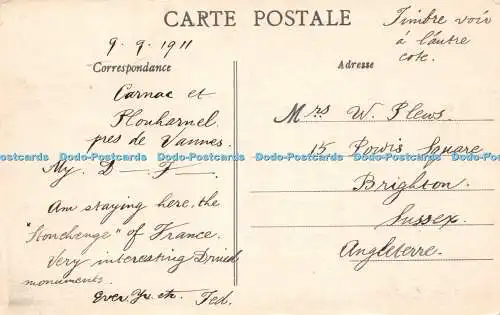 CARTE POSTALE
Timbre voir
à l'autre
cote.
9.9.1911
Correspondance
Adresse
Carnac et
Plouharnel.
pres de Vannes.
My. D— F—
Am staying here, the
"Stonehenge" of France.
Very interesting Druid
monuments.
Ever Yrs etc. Ted.
Mrs W. Plews.
15 Powis Square
Brighton.
Sussex.
Angleterre.
Dodo-Postcards Dodo-Postcards Dodo-Postcards Dodo-Postcards Dodo-Postcards Dodo-Postcards